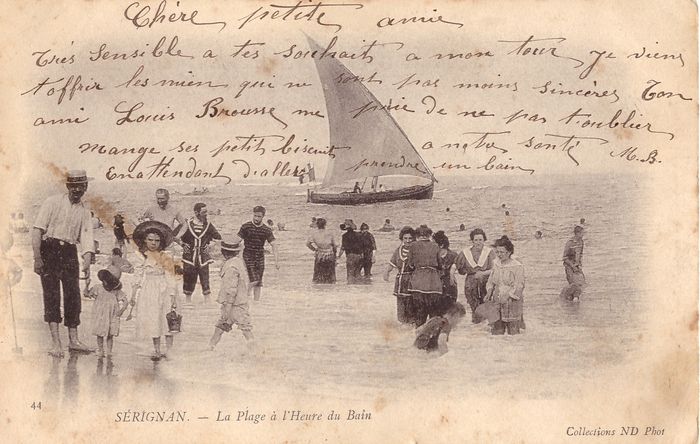 Chère petite amie
très sensible a tes souhait a mon tour je viens
t'offrir les mien qui ne sont pas moins sincères Ton
ami Louis Brousse me prie de ne pas t'oublier
mange ses petit biscuit a notre santé
En attendant d'aller prendre un bain M. B.
44
SÉRIGNAN. — La Plage à l'Heure du Bain
Collections ND Phot